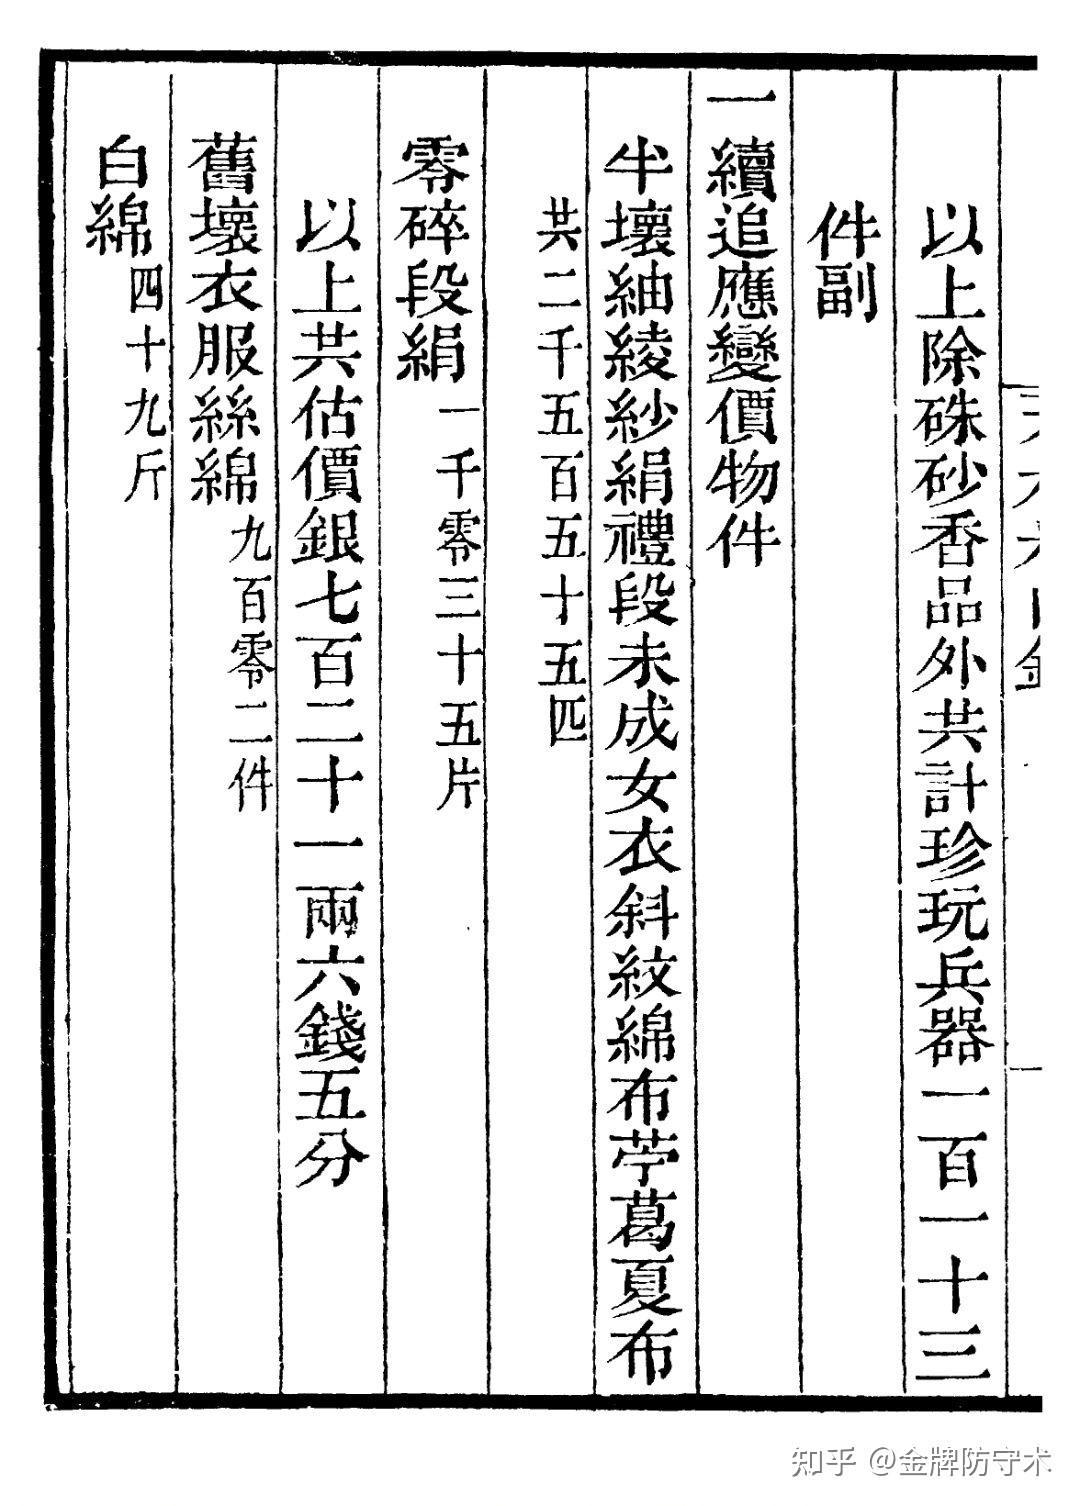 以上除硃砂香品外共計珍玩兵器一百一十三
件副
一續追應變價物件
半壞紬綾紗絹禮段未成女衣斜紋綿布苧葛夏布
共二千五百五十五匹
零碎段絹一千零三十五片
以上共估價銀七百二十一兩六錢五分
舊壞衣服絲綿九百零二件
白綿四十九斤
知乎 @金牌防守术